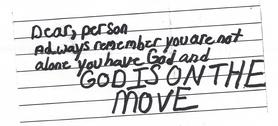 Dear, person
Adways remember you are not
alone you have God and
GOD IS ON THE
MOVE